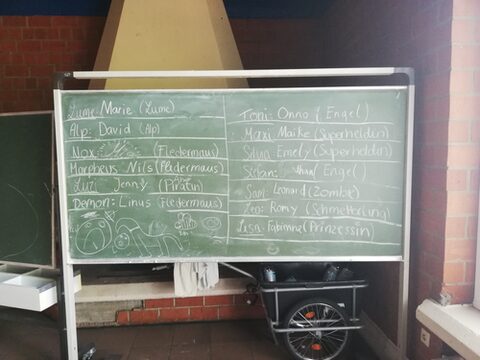 Lume: Marie (Lume)
Alp: David (Alp)
Nox: (Fledermaus)
Morpheus Nils (Fledermaus)
Luzi Jenny (Piratin)
Demon: Linus (Fledermaus)
Toni: Onno (Engel)
Maxi Maike (Superheldin)
Silvia Emely (Superheldin)
Stefan: (Engel)
Sam: Leonard (Zombi)
Zen: Romy (Schmetterling)
Lisa: Fabienne (Prinzessin)